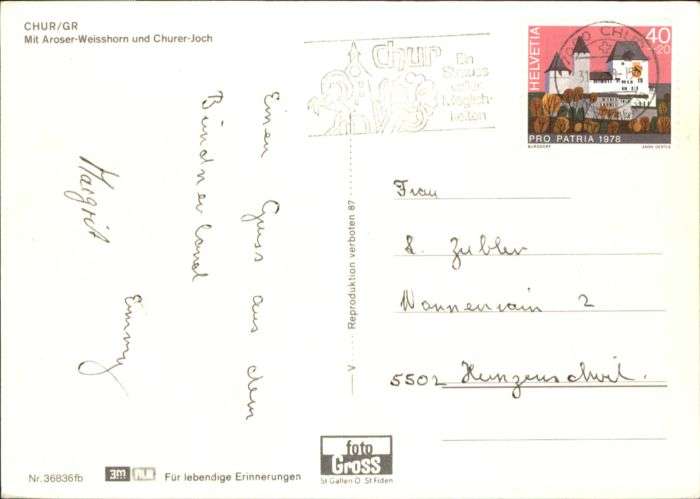 CHUR/GR
Mit Aroser-Weisshorn und Churer-Joch
Chur
Ein
Strauss
voller
Möglich-
keiten
7000 CHUR
31
HELVETIA
40
+20
PRO PATRIA 1978
BURGDORF
Einen Gruss aus dem
Bündnerland
Margrit
Emmy
V
Reproduktion verboten 87
Frau
L. Zubler
Wannenrain 2
5502 Hunzenschwil.
Nr. 36836fb
3M FILM
Für lebendige Erinnerungen
foto
Gross
St Gallen O St Fiden